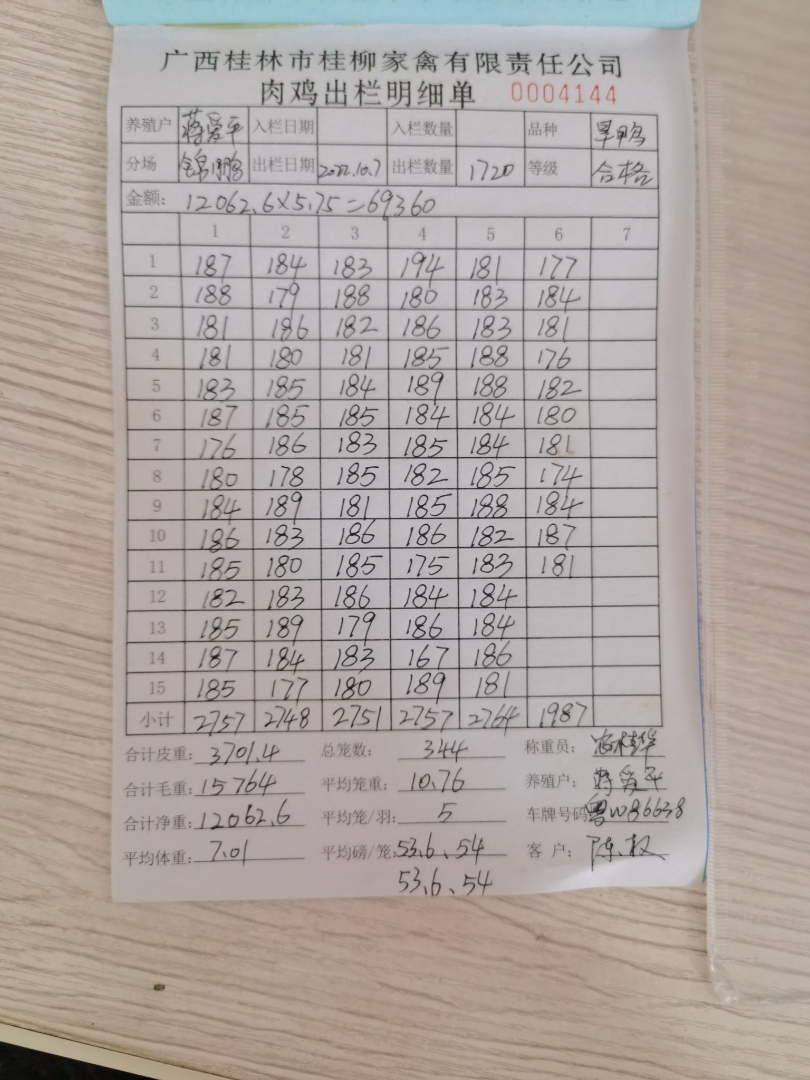 广西桂林市桂柳家禽有限责任公司
肉鸡出栏明细单 0004144
养殖户 蒋爱平 入栏日期 入栏数量 品种 旱鸭
分场 锦鹏 出栏日期 2022.10.7 出栏数量 1720 等级 合格
金额: 12062.6×5.75=69360
1 2 3 4 5 6 7
1 187 184 183 194 181 177
2 188 179 188 180 183 184
3 181 186 182 186 183 181
4 181 180 181 185 188 176
5 183 185 184 189 188 182
6 187 185 185 184 184 180
7 176 186 183 185 184 181
8 180 178 185 182 185 174
9 184 189 181 185 188 184
10 186 183 186 186 182 187
11 185 180 185 175 183 181
12 182 183 186 184 184
13 185 189 179 186 184
14 187 184 183 167 186
15 185 177 180 189 181
小计 2757 2748 2751 2757 2764 1987
合计皮重: 3701.4 总笼数: 344 称重员:
合计毛重: 15764 平均笼重: 10.76 养殖户: 蒋爱平
合计净重: 12062.6 平均笼/羽: 5 车牌号码 粤W86638
平均体重: 7.01 平均磅/笼: 53.6、54 客户: 陈权
53.6、54